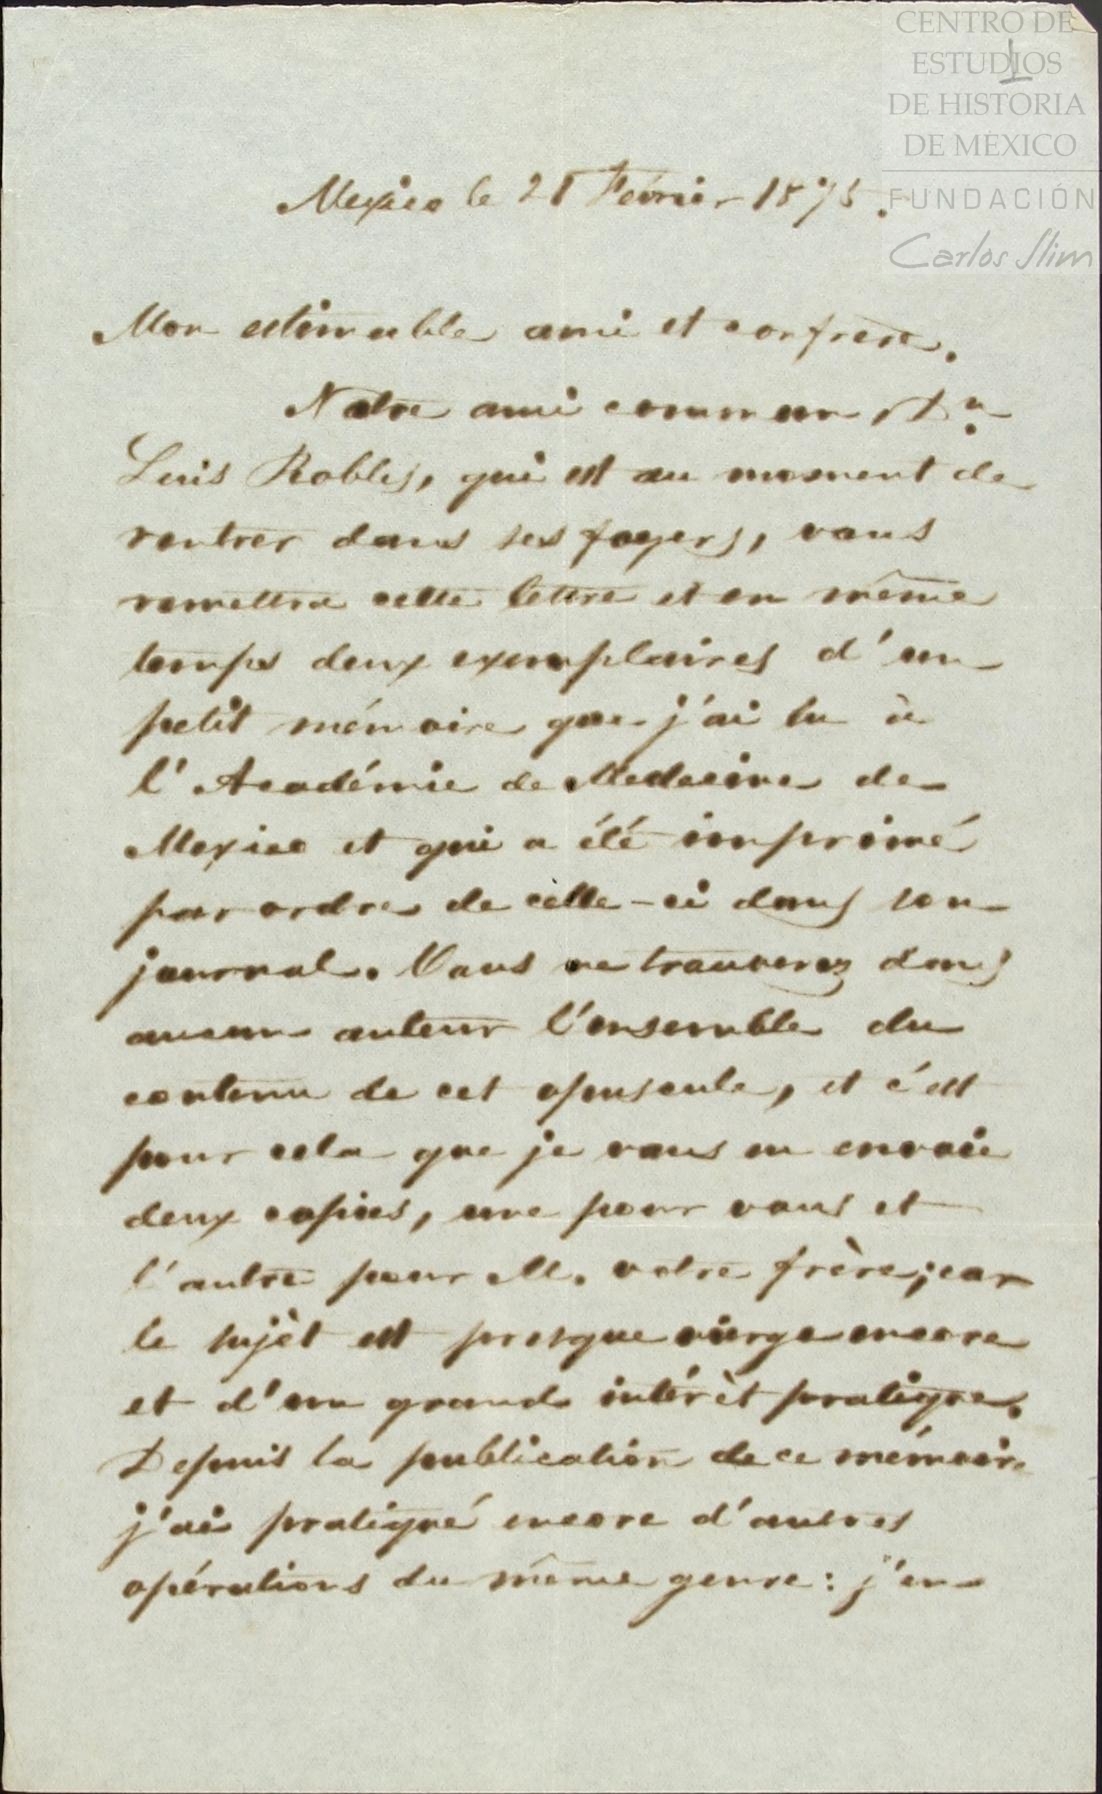 CENTRO DE
ESTUDIOS
DE HISTORIA
DE MÉXICO
FUNDACIÓN
Carlos Slim
1
Mexico le 21 Février 1875.
Mon estimable ami et confrère.
Notre ami commun, Dn.
Luis Robles, qui est au moment de
rentrer dans ses foyers, vous
remettra cette lettre et en même
temps deux exemplaires d'un
petit mémoire que j'ai lu à
l'Académie de Medecine de
Mexico et qui a été imprimé
par ordre de celle-ci dans son
journal. Vous ne trouverez dans
aucun auteur l'ensemble du
contenu de cet opuscule, et c'est
pour cela que je vous en envoie
deux copies, une pour vous et
l'autre pour M. votre frère; car
le sujèt est presque vierge encore
et d'un grand intérèt pratique.
Depuis la publication de ce mémoire
j'ai pratiqué encore d'autres
opérations du même genre: j'en